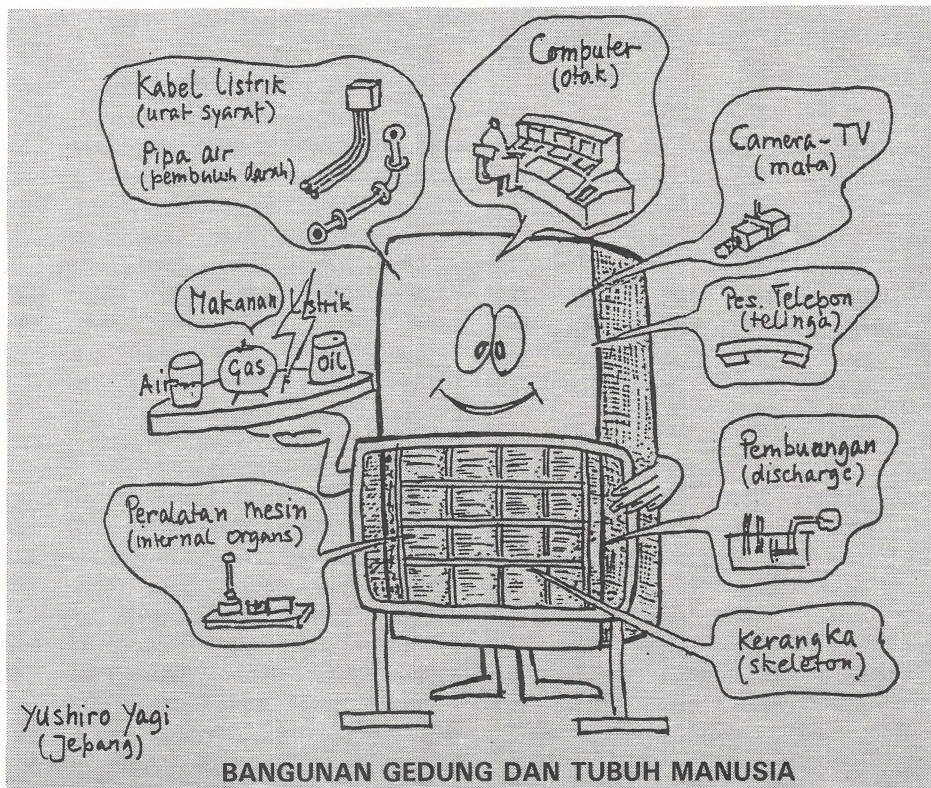 Kabel Listrik
(urat syarat)
Pipa air
(pembuluh darah)
Computer
(otak)
Camera-TV
(mata)
Makanan
Listrik
Air
Gas
Oil
Pes. Telepon
(telinga)
Pembuangan
(discharge)
Peralatan mesin
(internal organs)
Kerangka
(skeleton)
Yushiro Yagi
(Jepang)
BANGUNAN GEDUNG DAN TUBUH MANUSIA